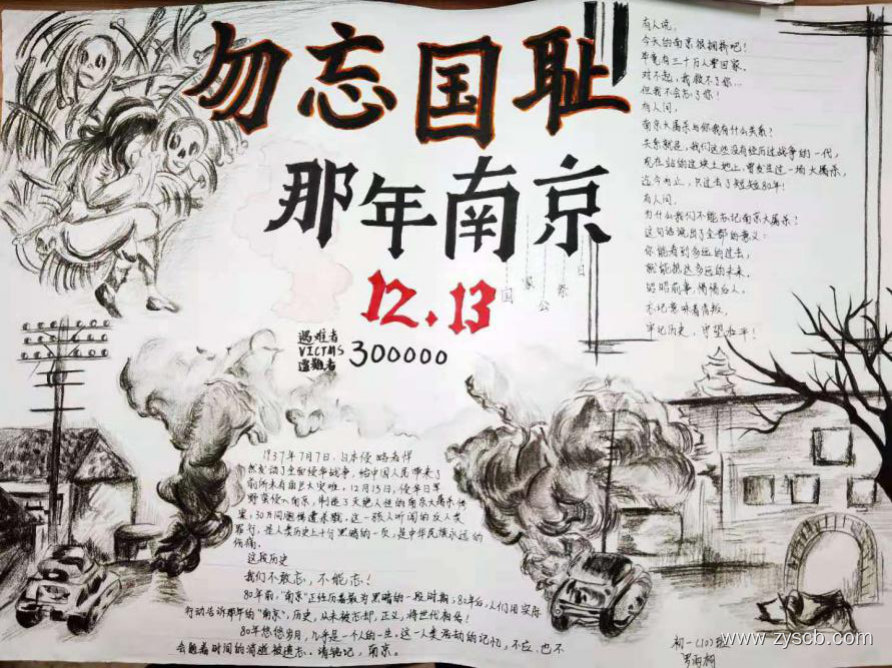 勿忘国耻
那年南京
12.13
国家公祭日
遇难者
VICTMS 300000
遭難者
有人说，
今天的南京很拥挤吧！
毕竟有三十万人要回家。
对不起，我救不了你…
但我不会忘了你！
有人问，
南京大屠杀与你我有什么关系？
关系就是，我们这些没有经历过战争的一代，
现在站的这块土地上，曾发生过一场大屠杀，
迄今为止，只过去了短短80年！
有人问，
为什么我们不能忘记南京大屠杀？
这句话说出了全部的意义：
你能看到多远的过去，
就能抵达多远的未来。
昭昭前事，惕惕后人。
忘记意味着背叛，
牢记历史，守望和平！
1937年7月7日，日本侵略者悍
然发动了全面侵华战争，给中国人民带来了
前所未有的巨大灾难。12月13日，侵华日军
野蛮侵入南京，制造了灭绝人性的南京大屠杀惨
案，30万同胞惨遭杀戮。这一骇人听闻的反人类
罪行，是人类历史上十分黑暗的一页，是中华民族永远的
伤痛。
这段历史
我们不敢忘，不能忘！
80年前，"南京"正经历着最为黑暗的一段时期；80年后，人们用实际
行动告诉那年的"南京"，历史，从未被忘却，正义，将世代相传！
80年悠悠岁月，几乎是一个人的一生。这一人类活动的记忆，不应、也不
会随着时间的消逝被遗忘。请铭记，南京。
初一(10)班
罗雨桐
www.zyscb.com